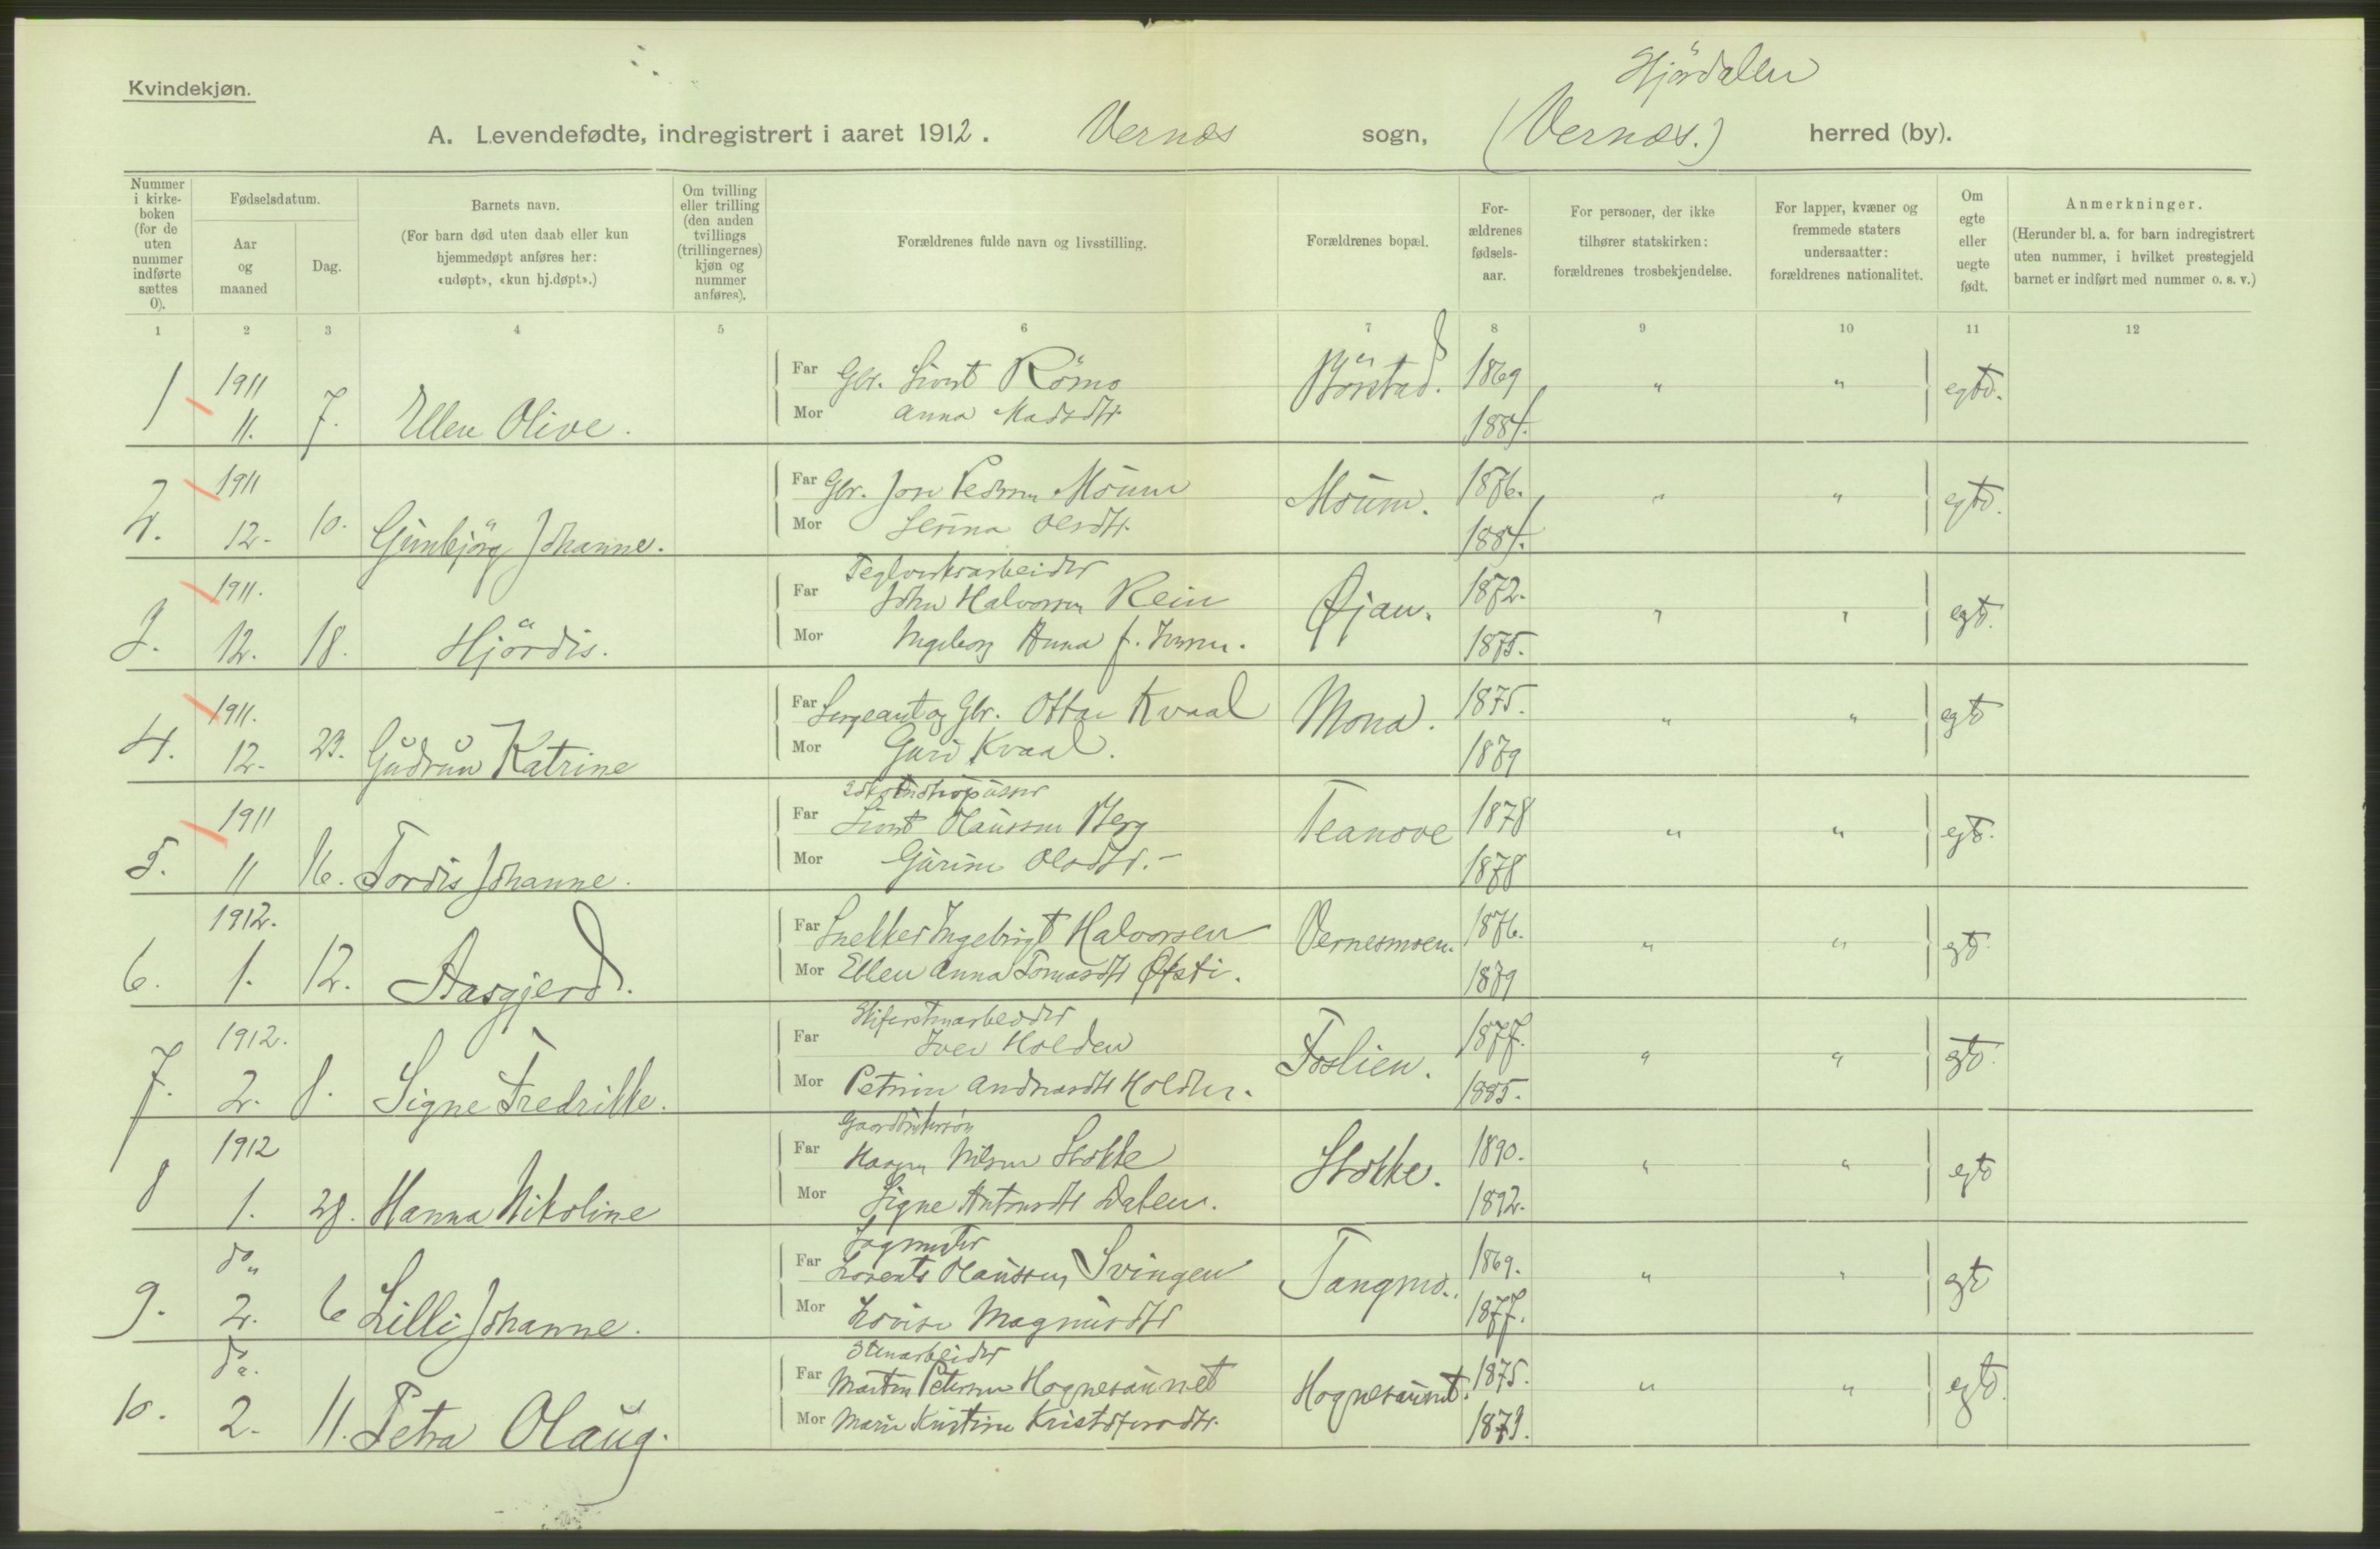 Kvindekjøn.
Hjördalen
A. Levendefødte, indregistrert i aaret 1912. Vernæs sogn, (Vernæs.) herred (by).
Nummer i kirke-boken (for de uten nummer indførte sættes 0).
Fødselsdatum.
Aar og maaned
Dag.
Barnets navn.
(For barn død uten daab eller kun hjemmedøpt anføres her: «udøpt», «kun hj.døpt».)
Om tvilling eller trilling (den anden tvillings (trillingernes) kjøn og nummer anføres).
Forældrenes fulde navn og livsstilling.
Forældrenes bopæl.
For-ældrenes fødsels-aar.
For personer, der ikke tilhører statskirken: forældrenes trosbekjendelse.
For lapper, kvæner og fremmede staters undersaatter: forældrenes nationalitet.
Om egte eller uegte født.
Anmerkninger.
(Herunder bl. a. for barn indregistrert uten nummer, i hvilket prestegjeld barnet er indført med nummer o. s. v.)
1 2 3 4 5 6 7 8 9 10 11 12
1 1911 11. 7. Ellen Olive.
Far Gbr. Sivert Römo
Mor Anna Madsdtr
1869 1884. " " egtd.
2. 1911 12. 10. Gunbjörg Johanne.
Far Gbr. Jon Pedersen Moum
Mor Serina Olsdtr.
Moum. 1876. 1884. " " egtd.
3. 1911. 12. 18. Hjördis.
Far Teglverksarbeider
John Halvorsen Rein
Mor Ingeborg Anna f.
Øjan. 1872. 1875. " " egt.
4. 1911. 12. 23. Gudrun Katrine
Far Sergeant og Gbr. Ottar Kvaal
Mor Guru Kvaal.
Mona. 1875. 1879 " " egt
5. 1911 11 16. Tordis Johanne.
Far Sivert Olaussen Berg
Mor Gurine Olsdtr. -
1878 1878 " " egt.
6. 1912. 1. 12. Aasgjerd.
Far Snekker Ingebrigt Halvorsen
Mor Ellen Anna Tomasdtr Øfsti.
Vernesmoen. 1876. 1879 " " egt.
7. 1912. 2. 8. Signe Fredrikke.
Far Skiferstenarbeider
Iver Holden
Mor Petrine Andreasdtr Holden.
Foslien. 1877. 1885. " " egt.
8 1912 1. 28. Hanna Nikoline
Far Haagen Nilsen Stokke
Mor Signe Antonsdtr Dalen.
Stokke. 1890. 1892. " " egt
9. do " 2. 6 Lilli Johanne.
Far Sagmester
Lorents Olaussen Svingen
Mor Lovise Magnusdtr
Tangmo. 1869. 1877. " " egt
10. do. 2. 11. Petra Olaug.
Far Stenarbeider
Martin Petersen Hognesaunet
Mor Marie Kristine Kristofersdtr.
Hognesaunet. 1875. 1879. " " egtd.